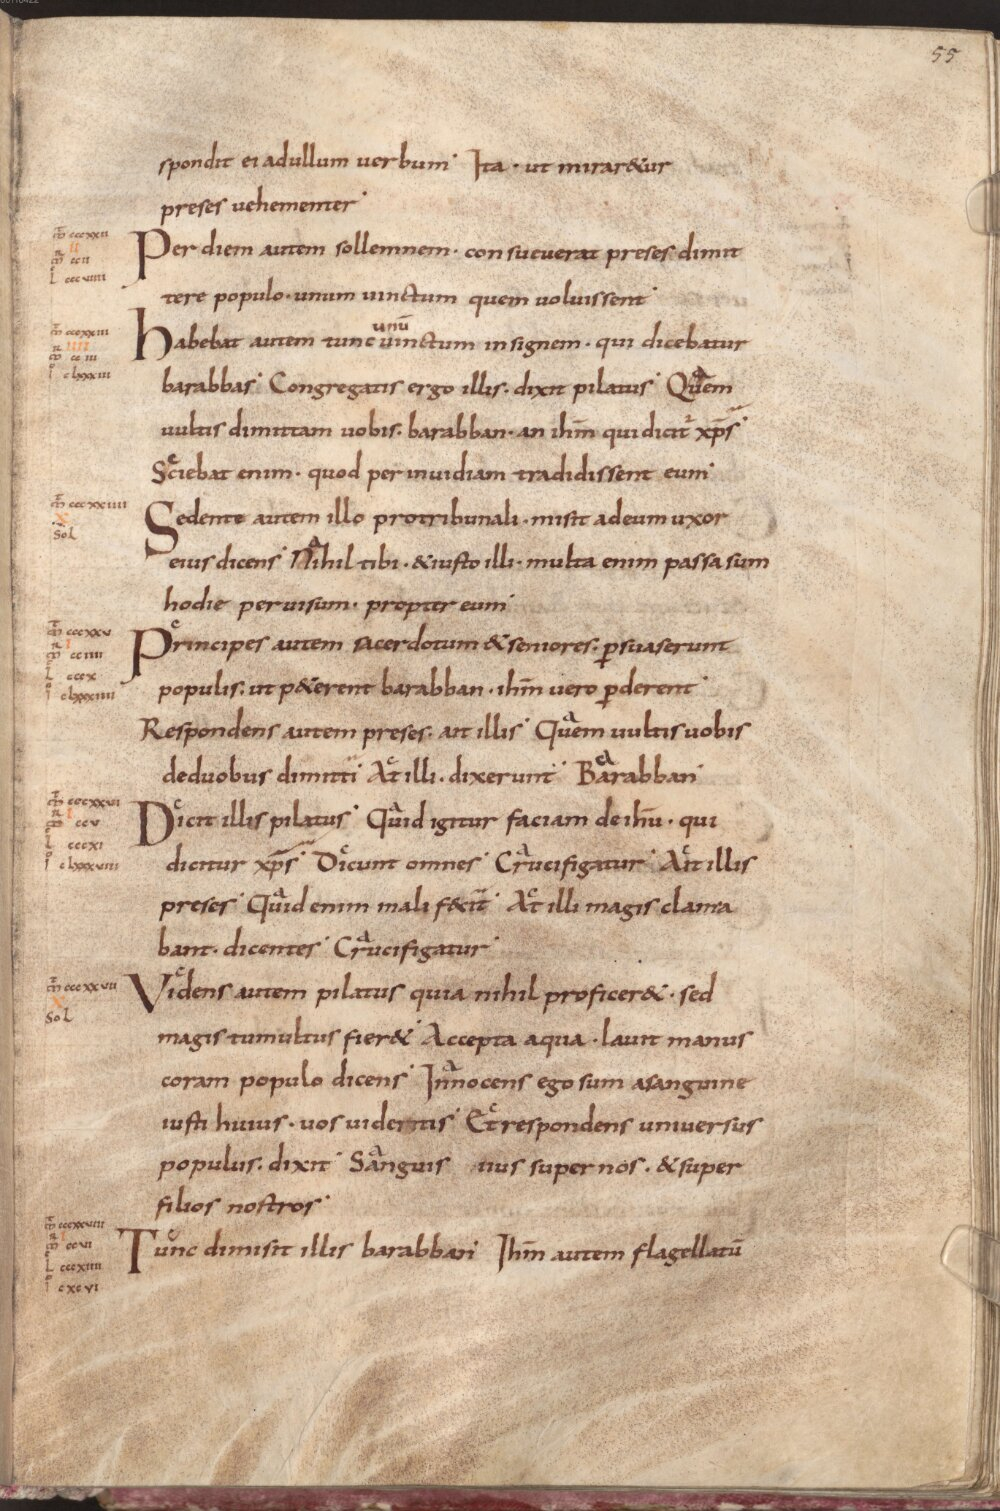 55
spondit ei adullum uerbum Ita · ut mirar&ur
preses uehementer
m̄ cccxxii
ii
m̄ ccii
l cccviiii
Per diem autem sollemnem · consueuerat preses dimit
tere populo · unum uinctum quem uoluissent
m̄ cccxxiii
iiii
m̄ cciii
i clxxxiii
unū
Habebat autem tunc uinctum insignem · qui dicebatur
barabbas Congregatis ergo illis · dixit pilatus Quem
uultis dimittam uobis · barabban · an ihm̄ qui dicit² xp̄s
Sciebat enim · quod per inuidiam tradidissent eum
m̄ cccxxiiii
x
sol
Sedente autem illo protribunali · misit adeum uxor
eius dicens Nihil tibi · &iusto illi · multa enim passa sum
hodie per uisum · propter eum
m̄ cccxxv
i
m̄ cciiii
l cccx
i clxxxiiii
Principes autem sacerdotum &seniores · p̲suaserunt
populis · ut p&erent barabban · ihm̄ uero p̲derent
Respondens autem preses · ait illis Quem uultis uobis
deduobus dimitti At illi · dixerunt Barabban
m̄ cccxxvi
i
m̄ ccv
l cccxi
i clxxxviii
Dicit illis pilatus Quid igitur faciam de ihū · qui
dicitur xp̄s Dicunt omnes Crucifigatur Ait illis
preses Quid enim mali f&cit At illi magis clama
bant · dicentes Crucifigatur
m̄ cccxxvii
x
sol
Videns autem pilatus quia nihil proficer& · sed
magis tumultus fier& Accepta aqua · lauit manus
coram populo dicens Innocens ego sum asanguine
iusti huius · uos uideritis Et respondens uniuersus
populus · dixit Sanguis ius super nos · &super
filios nostros
m̄ cccxxviii
i
m̄ ccvi
l cccxiiii
i cxcvi
Tunc dimisit illis barabban Ihm̄ autem flagellatū